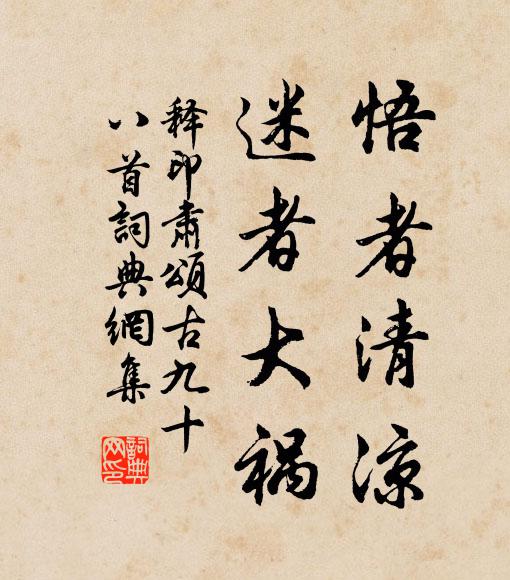 悟者清凉
迷者大祸
释印肃颂古九十
八首詞典網集
詞典
网印